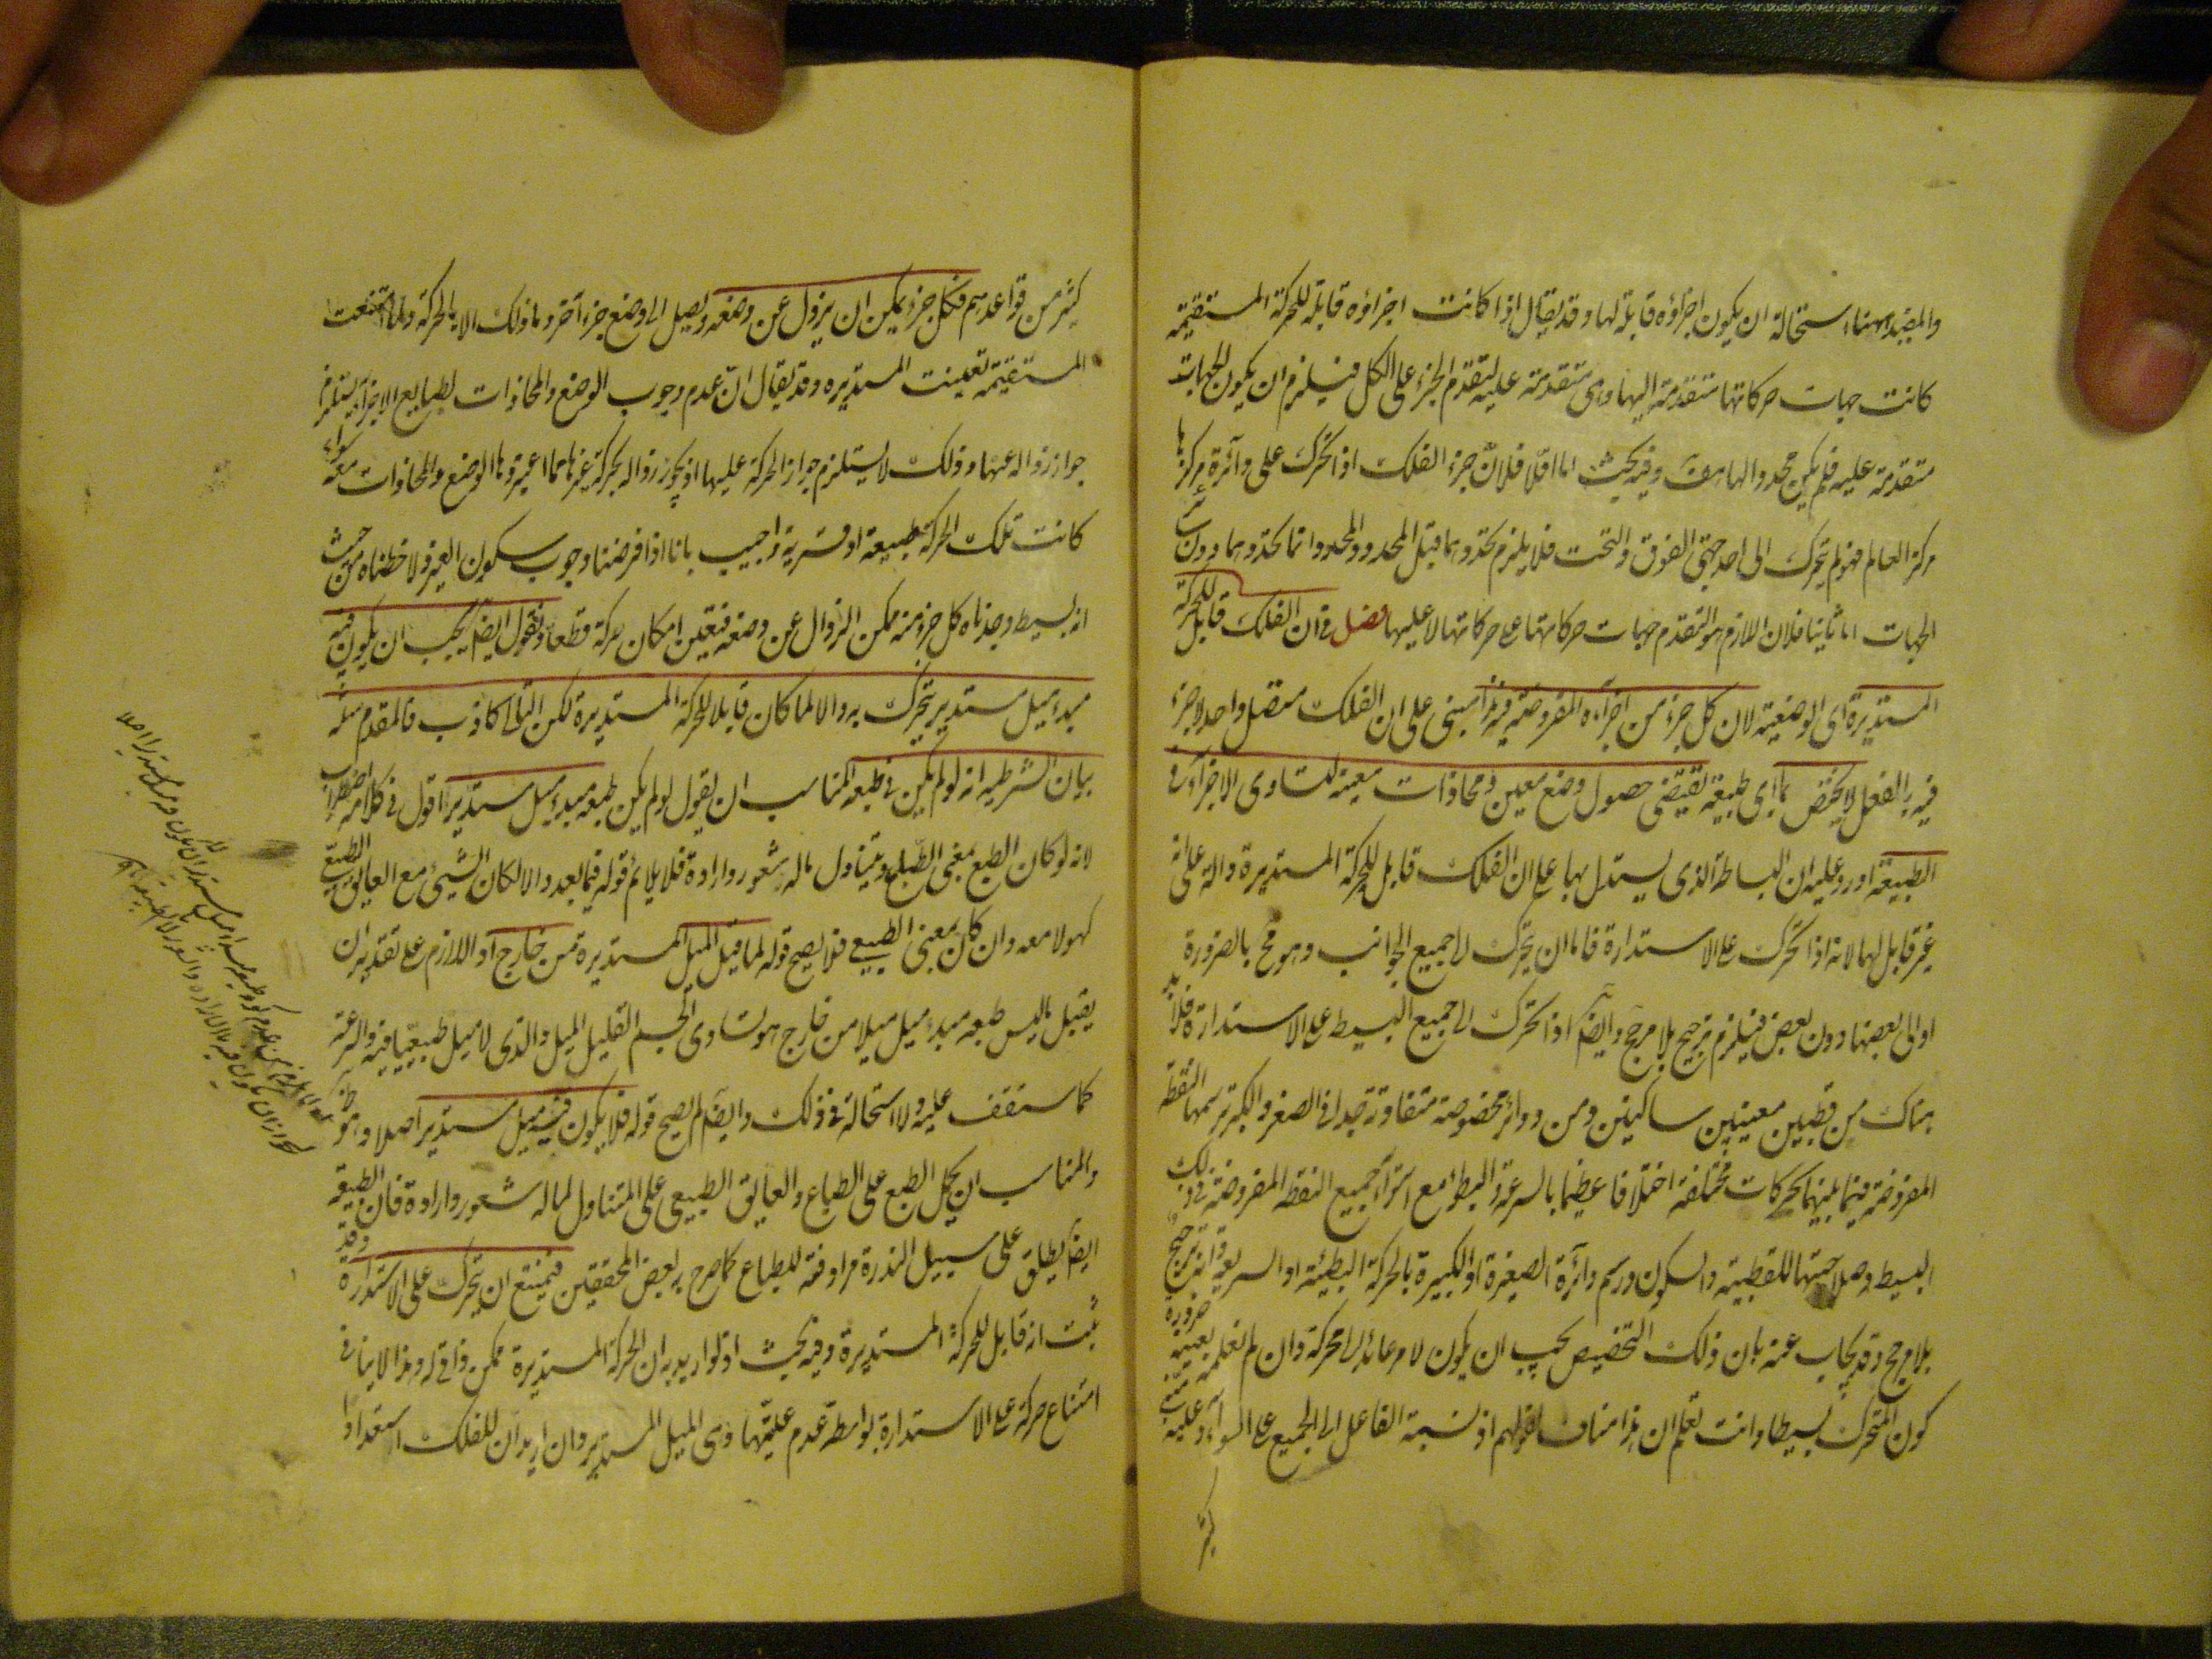 والمقصد ههنا استحالة ان يكون اجزاؤه قابلة لها وقد يقال اذا كانت اجزاؤه قابلة للحركة المستقيمة
كانت جهات حركاتها متقدمة اليها وهى متقدمة عليه لتقدم الجزء على الكل فيلزم ان يكون الجهات
متقدمة عليه فلم يكن محددا لها هف وفيه بحث اما اولا فلان جزء الفلك اذا تحرك على دائرة مركزها
مركز العالم فهو لم يتحرك الى احد جهتى الفوق والتحت فلا يلزم تحددهما قبل المحدد والمحدد انما تحددهما دون سائر
الجهات اما ثانيا فلان اللازم هو تقدم جهات حركاتها على حركاتها لا عليها فصل فى ان الفلك قابل للحركة
المستديرة اى الوضعية لان كل جزء من اجزآئه المفروضة فيه هذا مبنى على ان الفلك متصل واحد لا جزء
فيه بالفعل لا يختص بما اى طبيعة تقتضى حصول وضع معين ومحاذات معينة لتساوى الاجزآء فى
الطبيعة اورد عليه ان البساطة الذى يستدل بها على ان الفلك قابل للحركة المستديرة دالة على انه
غير قابل لها لانه اذا تحرك على الاستدارة فاما ان يتحرك الى جميع الجوانب وهو مح بالضرورة
او الى بعضها دون بعض فيلزم ترجيح بلا مرجح وايضا اذا تحرك الى جميع البسيط على الاستدارة فلابد
هناك من قطبين معينين ساكنين ومن دوائر مخصوصة متفاوتة جدا فى الصغر والكبر ترسمها النقطة
المفروضة فيما بينهما بحركات مختلفة اختلافا عظيما بالسرعة والبطؤ مع استوآء جميع النقطة المفروضة فى ذلك
البسيط وصلاحيتها للقطبية والسكون ورسم دائرة الصغيرة او الكبيرة بالحركة البطيئة او السريعة وانه ترجيح
بلا مرجح وقد يجاب عنه بان ذلك التخصيص يجب ان يكون لامر عائد الى محركه وان لم نعلمه بعينه ضرورة
كون المتحرك بسيطا وانت تعلم ان هذا مناف لقولهم اذ نسبة الفاعل الى الجميع على السواء وعليه مبنى
كثير
كثير من قواعدهم فكل جزء يمكن ان يزول عن وضعه ويصل الى وضع جزء آخر وما ذلك الا بالحركة ولما امتنعت
المستقيمة تعينت المستديرة وقد يقال ان عدم وجوب الوضع والمحاذات لطبايع الاجزآء يستلزم
جواز زواله عنها وذلك لا يستلزم جواز الحركة عليها اذ يجوز زواله بحركة غيرها مما اعتبر وما الوضع والمحاذات معه سواء
كانت تلك الحركة طبيعية او قسرية واجيب بانا اذا فرضنا وجوب سكون الغير ولاحظناه من حيث
انه بسيط وجدناه كل جزء منه ممكن الزوال عن وضعه فتعين امكان حركته قطعا ونقول ايضا يجب ان يكون فيه
مبدء ميل مستدير يتحرك به والا لما كان قابلا للحركة المستديرة لكن التالى كاذب فالمقدم مثله
بيان الشرطية انه لو لم يكن فى طبعه المناسب ان يقول لو لم يكن طبعه مبدء ميل مستدير اقول فى كلامه اضطراب
لانه لو كان الطبع بمعنى الطباع ويتناول ماله شعور وارادة فلا يلائم قوله فيما بعد والا لكان الشيئ مع العايق الطبيعى
كهو لا معه وان كان بمعنى الطبيعى فلا يصح قوله لما قبل الميل المستديرة من خارج اذ اللازم على تقدير ان
يقبل ما ليس طبعه مبدء ميل ميلا من خارج هو تساوى الجسم القليل الميل والذى لا ميل طبيعيا فيه فى السرعة
كما ستقف عليه ولا استحالة فى ذلك وايضا لم يصح قوله فلا يكون فيه ميل مستدير اصلا وهو ظ
والمناسب ان يحمل الطبع على الطباع والعايق الطبيعى على المتناول لماله شعور وارادة فان الطبيعة
ايضا يطلق على سبيل الندرة مرادفة للطباع كما صرح به بعض المحققين فيمتنع ان يتحرك على الاستدارة وقد
ثبت انه قابل للحركة المستديرة وفيه بحث اذ لو اريد به ان الحركة المستديرة ممكن ذاتى له وهذا لا ينافى
امتناع حركته على الاستدارة بواسطة عدم علتها وهى الميل المستدير وان اريد ان للفلك استعدادا